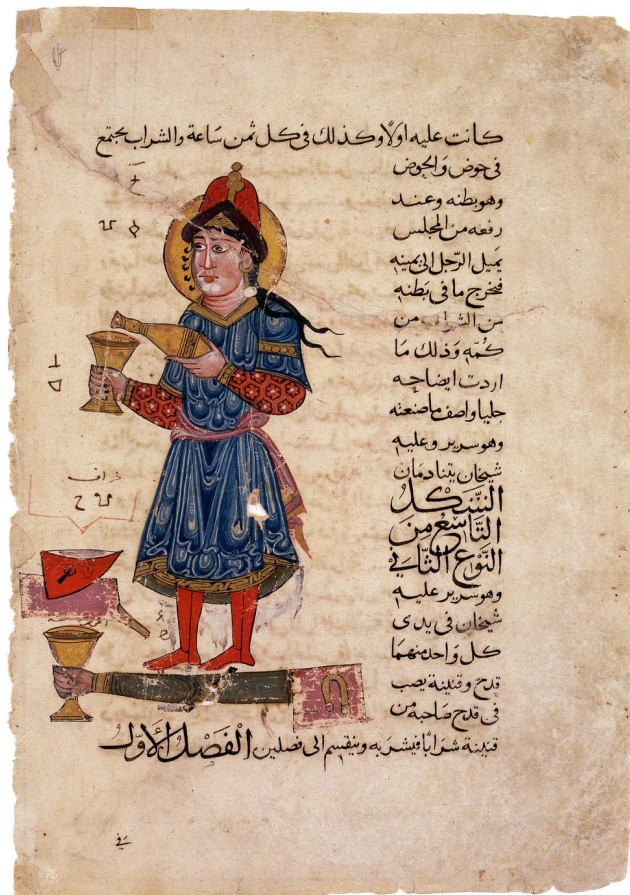 كانت عليه اولًا وكذلك فى كل ثمن ساعة والشراب يجتمع
فى حوض والحوض
وهو بطنه وعند
رفعه من المجلس
يميل الرّجل الى يمينه
فيخرج ما فى بطنه
من الشراب من
كُمّه وَذلك مَا
اردت ايضاحه
جليا واصف ما صنعته
وهو سرير وعليه
شيخان يتنادمان
الشكل
التاسع من
النوع الثّانى
وهو سرير عليه
شيخان فى يدى
كل واحد منهما
قدح وقنينة يصب
فى قدح صاحبه من
قنينة شرابًا فيشربه وينقسم الى فصلين الفصل الاوّل
فى